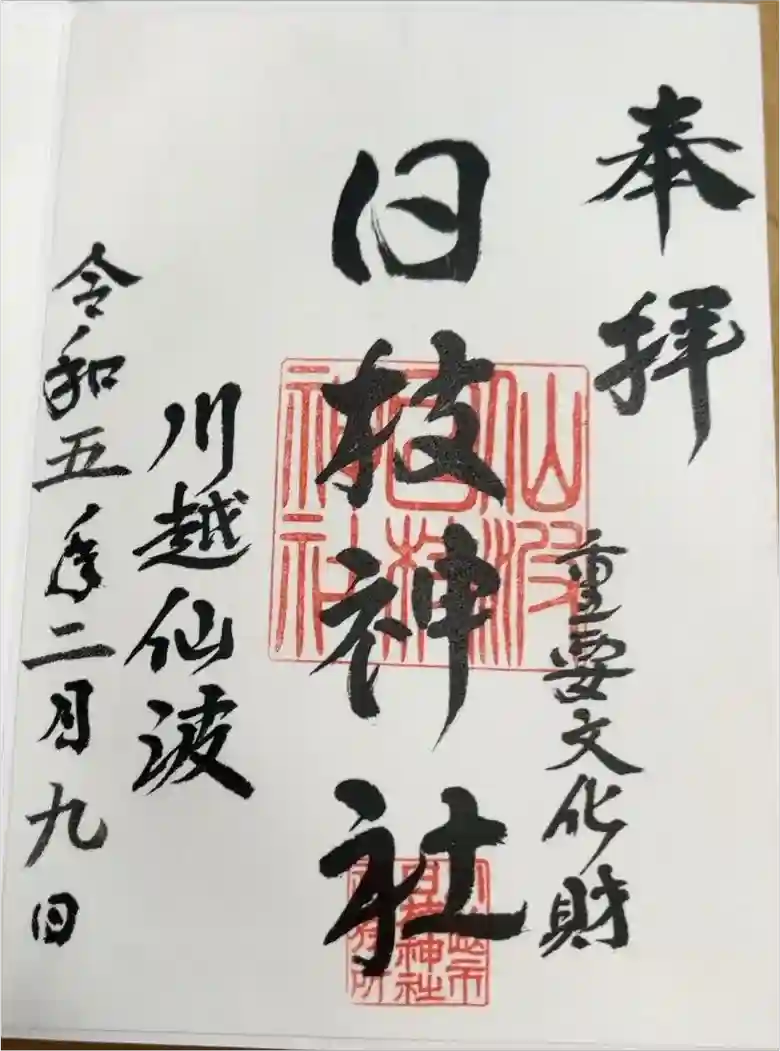 奉拝
重要文化財
日枝神社
仙波
日枝
神社
川越市
日枝神社
社務所
川越仙波
令和五年二月九日